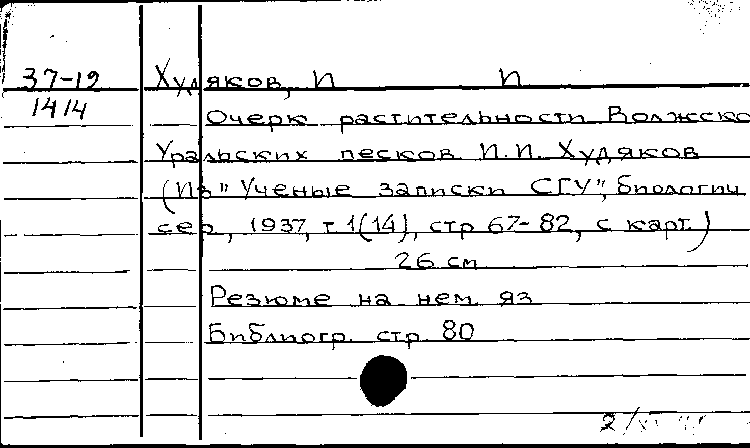 37-19 Худяков, И И
1414 Очерк растительности Волжско
Уральских песков И.И. Худяков
(Из "Ученые записки СГУ", биологич
сер, 1937, т 1(14), стр 67-82, с карт.)
26 см
Резюме на нем яз
Библиогр. стр. 80